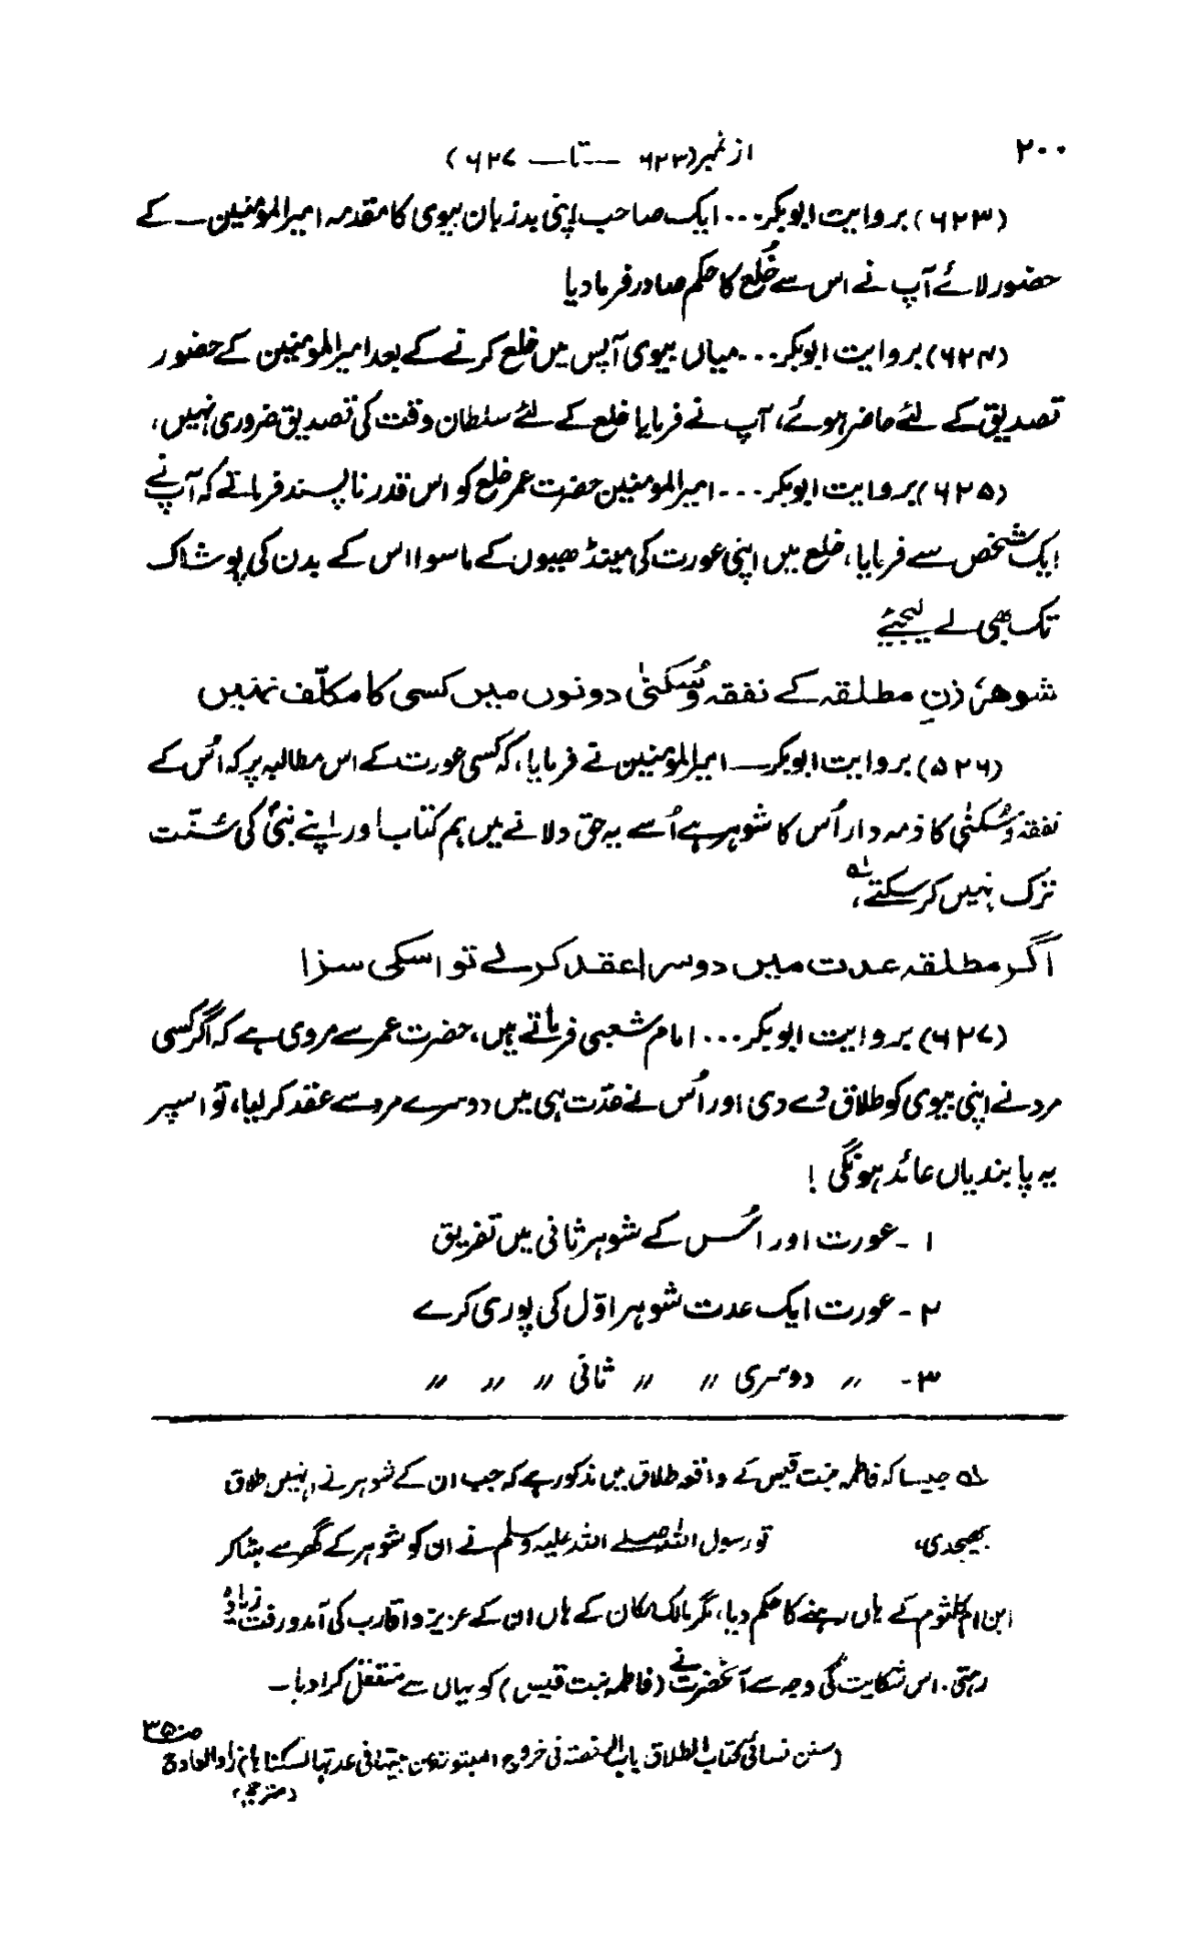 ۲۰۰
از نمبر (۶۲۳ — تا — ۶۲۷)
(۶۲۳) بروایت ابوبکر... ایک صاحب اپنی بدزبان بیوی کا مقدمہ امیرالمومنین — کے
حضور لائے آپ نے اس سے خُلع کا حکم صادر فرما دیا
(۶۲۴) بروایت ابوبکر... میاں بیوی آپس میں خلع کرنے کے بعد امیرالمومنین کے حضور
تصدیق کے لئے حاضر ہوئے، آپ نے فرمایا خلع کے لئے سلطان وقت کی تصدیق ضروری نہیں،
(۶۲۵) بروایت ابوبکر... امیرالمومنین حضرت عمر خلع کو اس قدر ناپسند فرماتے کہ آپ نے
ایک شخص سے فرمایا، خلع میں اپنی عورت کی مینڈھیوں کے ماسوا اس کے بدن کی پوشاک
تک بھی لے لیجیئے
شوھر زنِ مطلقہ کے نفقہ وُسکنیٰ دونوں میں کسی کا مکلّف نہیں
(۵۲۶) بروایت ابوبکر — امیرالمومنین نے فرمایا، کہ کسی عورت کے اس مطالبہ پر کہ اُس کے
نفقہ وُسکنیٰ کا ذمہ دار اُس کا شوہر ہے اُسے یہ حق دلانے میں ہم کتاب اور اپنے نبیؐ کی سُنّت
ترک نہیں کر سکتے،لہ
اگر مطلقہ عدت میں دوسرا عقد کرلے تو اسکی سزا
(۶۲۷) بروایت ابوبکر... امام شعبی فرماتے ہیں، حضرت عمر سے مروی ہے کہ اگر کسی
مرد نے اپنی بیوی کو طلاق دے دی اور اُس نے عدّت ہی میں دوسرے مرد سے عقد کر لیا، تو اسپر
یہ پابندیاں عائد ہونگی !
۱ - عورت اور اُس کے شوہر ثانی میں تفریق
۲ - عورت ایک عدت شوہر اوّل کی پوری کرے
۳ - 〃 دوسری 〃 〃 ثانی 〃 〃 〃
لہ جیسا کہ فاطمہ بنت قیس کے واقعہ طلاق میں مذکور ہے کہ جب ان کے شوہر نے انہیں طلاق
بھیجدی، تو رسول اللہ صلے اللہ علیہ وسلم نے ان کو شوہر کے گھر سے ہٹا کر
ابن ام کلثوم کے ہاں رہنے کا حکم دیا، مگر مالک مکان کے ہاں ان کے عزیز و اقارب کی آمد و رفت زیادہ
رہتی. اس شکایت کی وجہ سے آنحضرتؐ نے (فاطمہ بنت قیس) کو یہاں سے منتقل کرا دیا —
(سنن نسائی کتاب الطلاق باب الرخصتہ فی خروج المبتوتہ من بیتہا فی عدتہا لسکنا ہا
(مترجم)